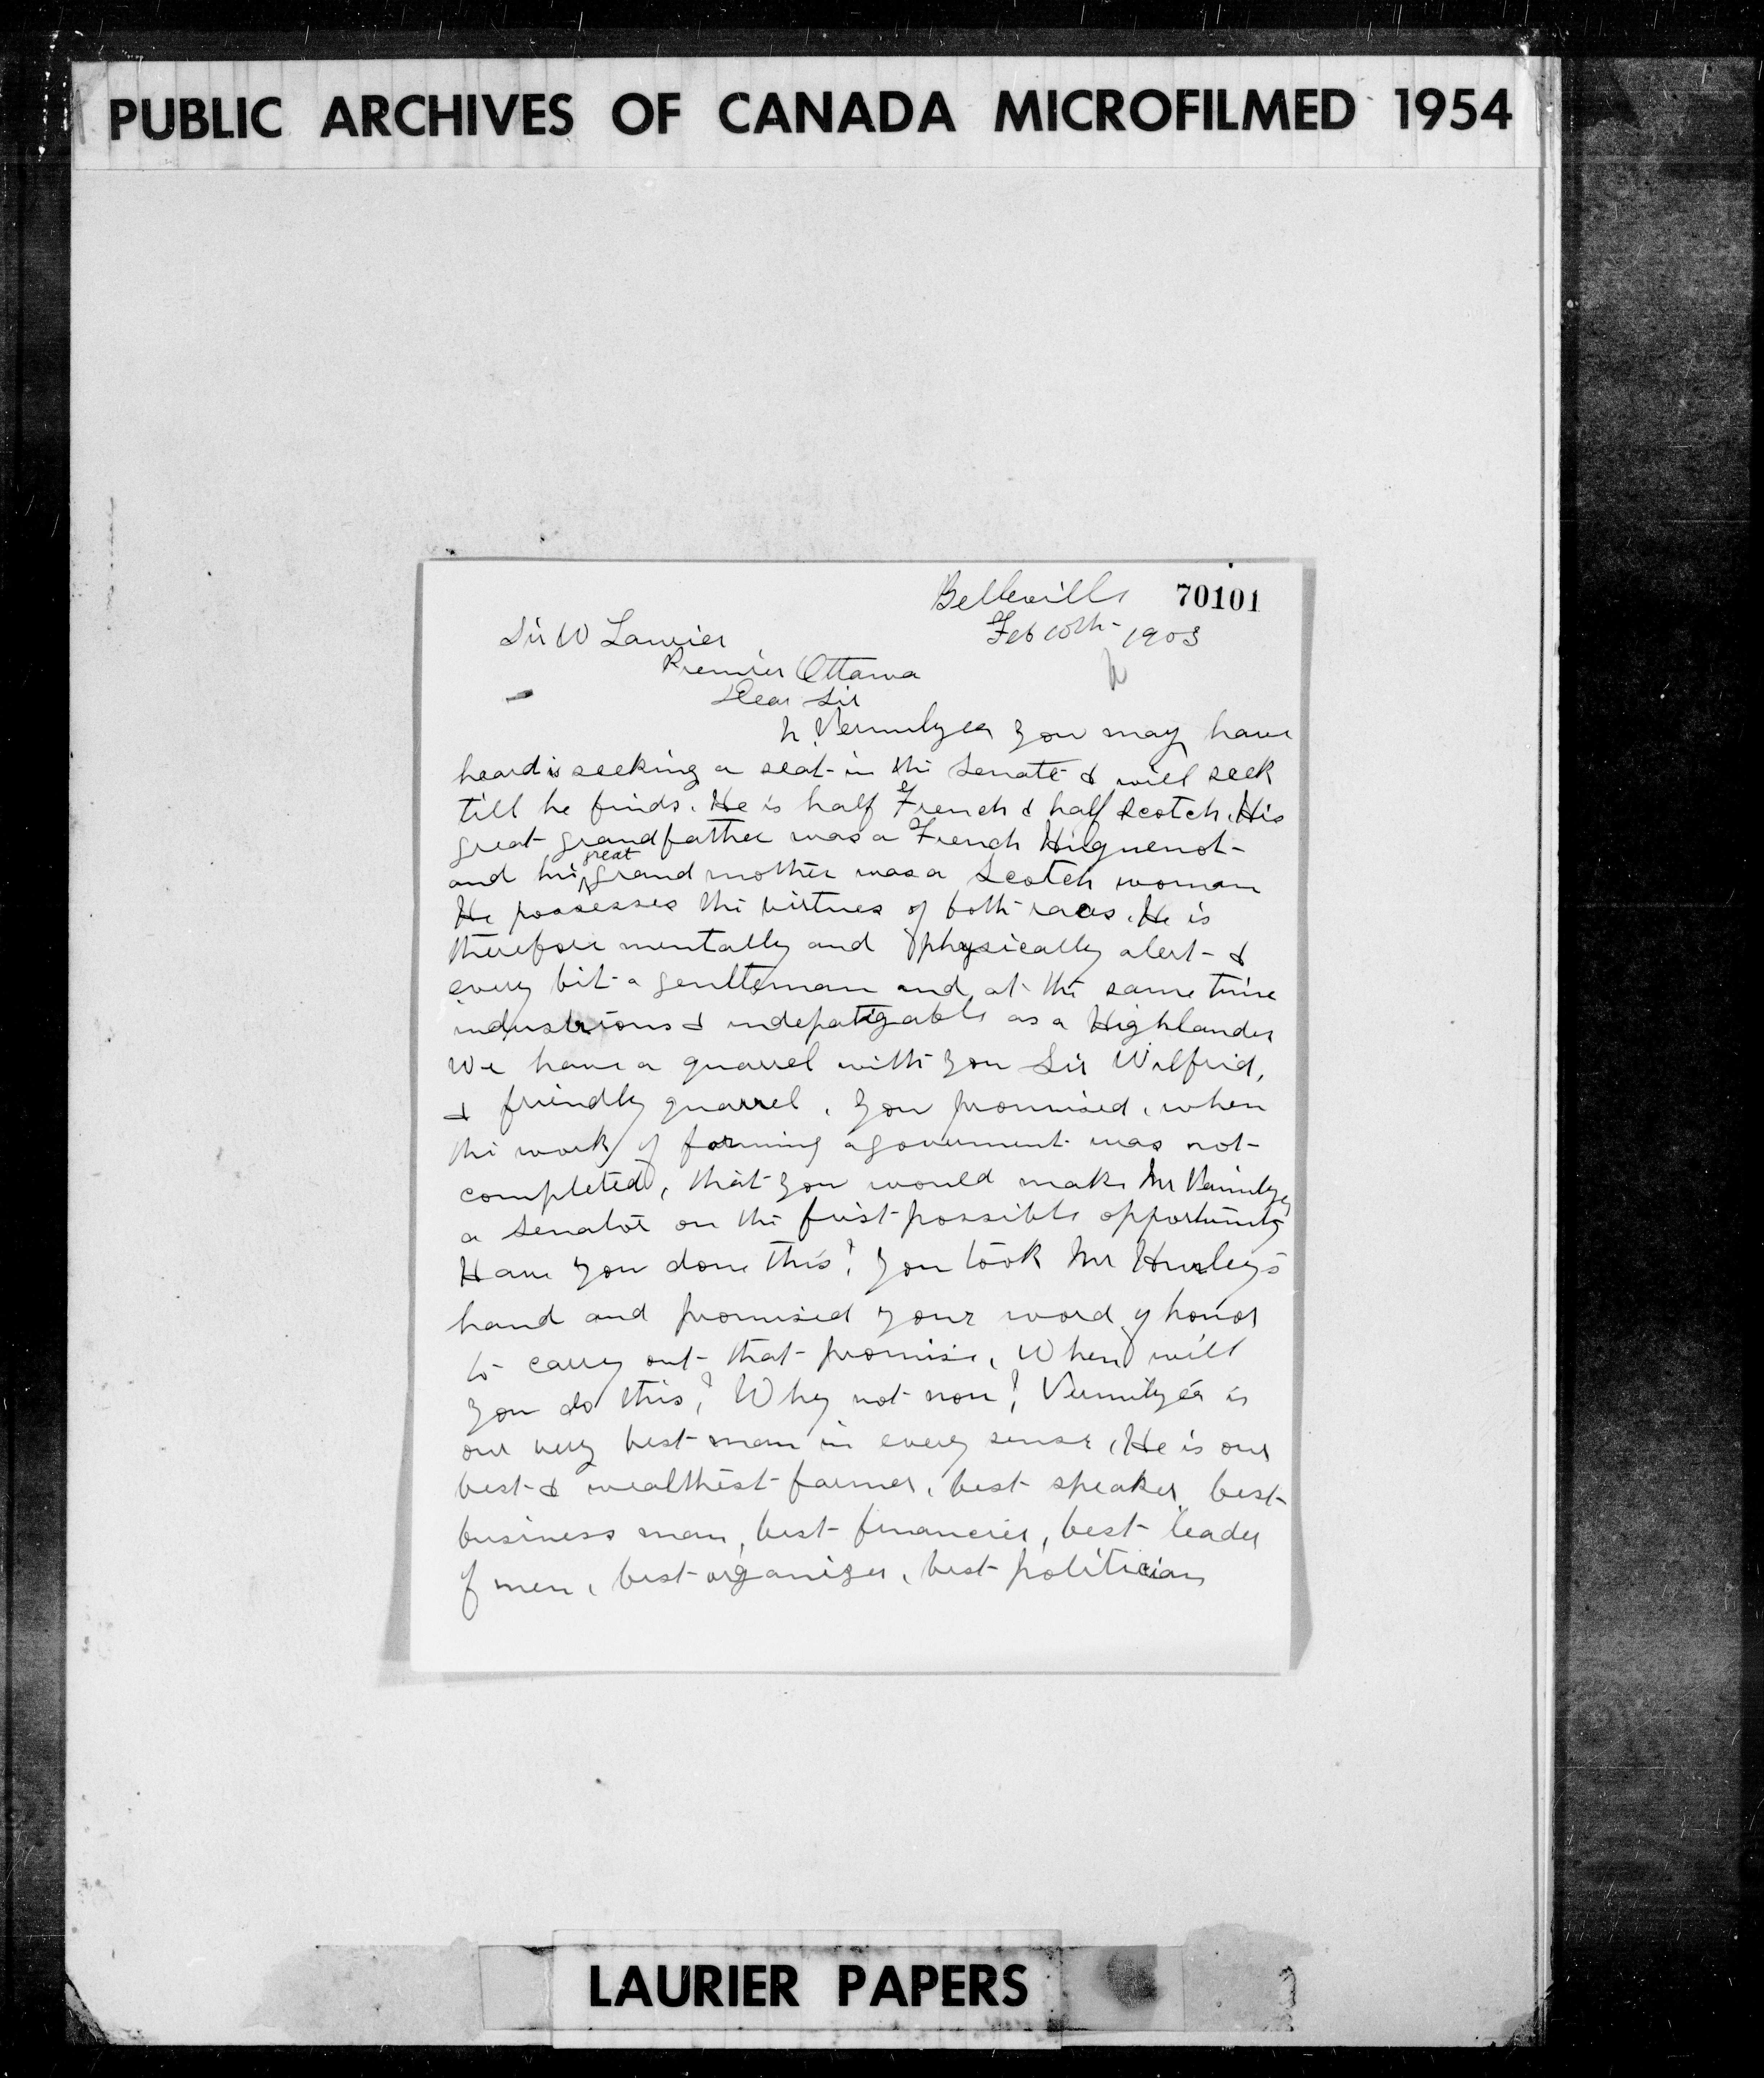 PUBLIC ARCHIVES OF CANADA MICROFILMED 1954
Belleville 70101
Feb 10th 1903
Sir W Laurier
Premier Ottawa
Dear Sir
N. Vermilyea you may have
heard is seeking a seat in the Senate & will seek
till he finds. He is half French & half Scotch. His
great grandfather was a French Huguenot
and his great grandmother was a Scotch woman
He possesses the virtues of both races. He is
therefore mentally and physically alert &
every bit a gentleman and at the same time
industrious & indefatigable as a Highlander
We have a quarrel with you Sir Wilfrid,
a friendly quarrel. You promised, when
the work of forming a government was not
completed, that you would make Mr Vermilyea
a Senator on the first possible opportunity
Have you done this? You took Mr Hurley's
hand and promised your word of honor
to carry out that promise. When will
you do this? Why not now? Vermilyea is
our very best man in every sense. He is our
best & wealthiest farmer, best speaker, best
business man, best financier, best leader
of men, best organizer, best politician
LAURIER PAPERS